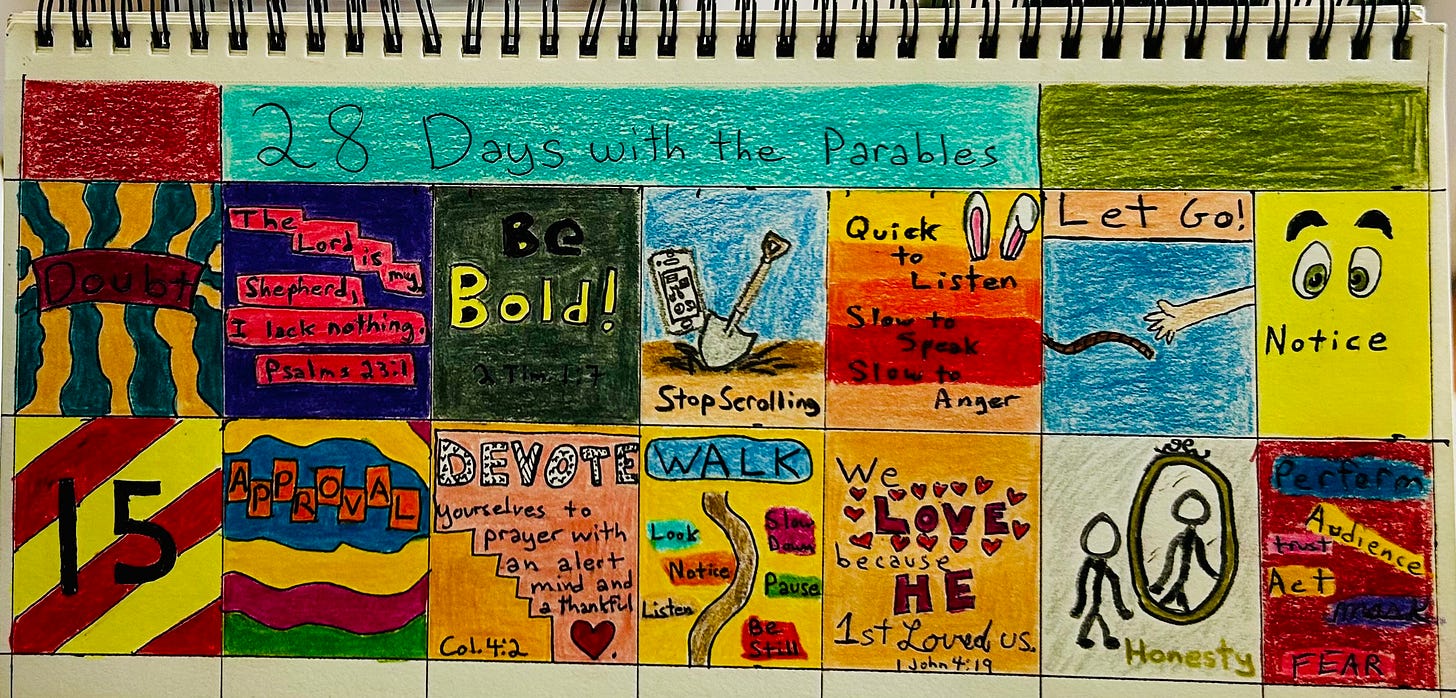 28 Days with the Parables
Doubt
The
Lord
is
my
Shepherd,
I lack nothing.
Psalms 23:1
Be
Bold!
2 Tim 1:7
Stop Scrolling
Quick
to
Listen
Slow to
Speak
Slow to
Anger
Let Go!
Notice
15
APPROVAL
DEVOTE
yourselves to
prayer with
an alert
mind and
a thankful
Col. 4:2
WALK
Look
Slow
Down
Notice
Pause
Listen
Be
Still
We
LOVE
because
HE
1st Loved us.
1 John 4:19
Honesty
Perform
Audience
trust
Act
mask
FEAR